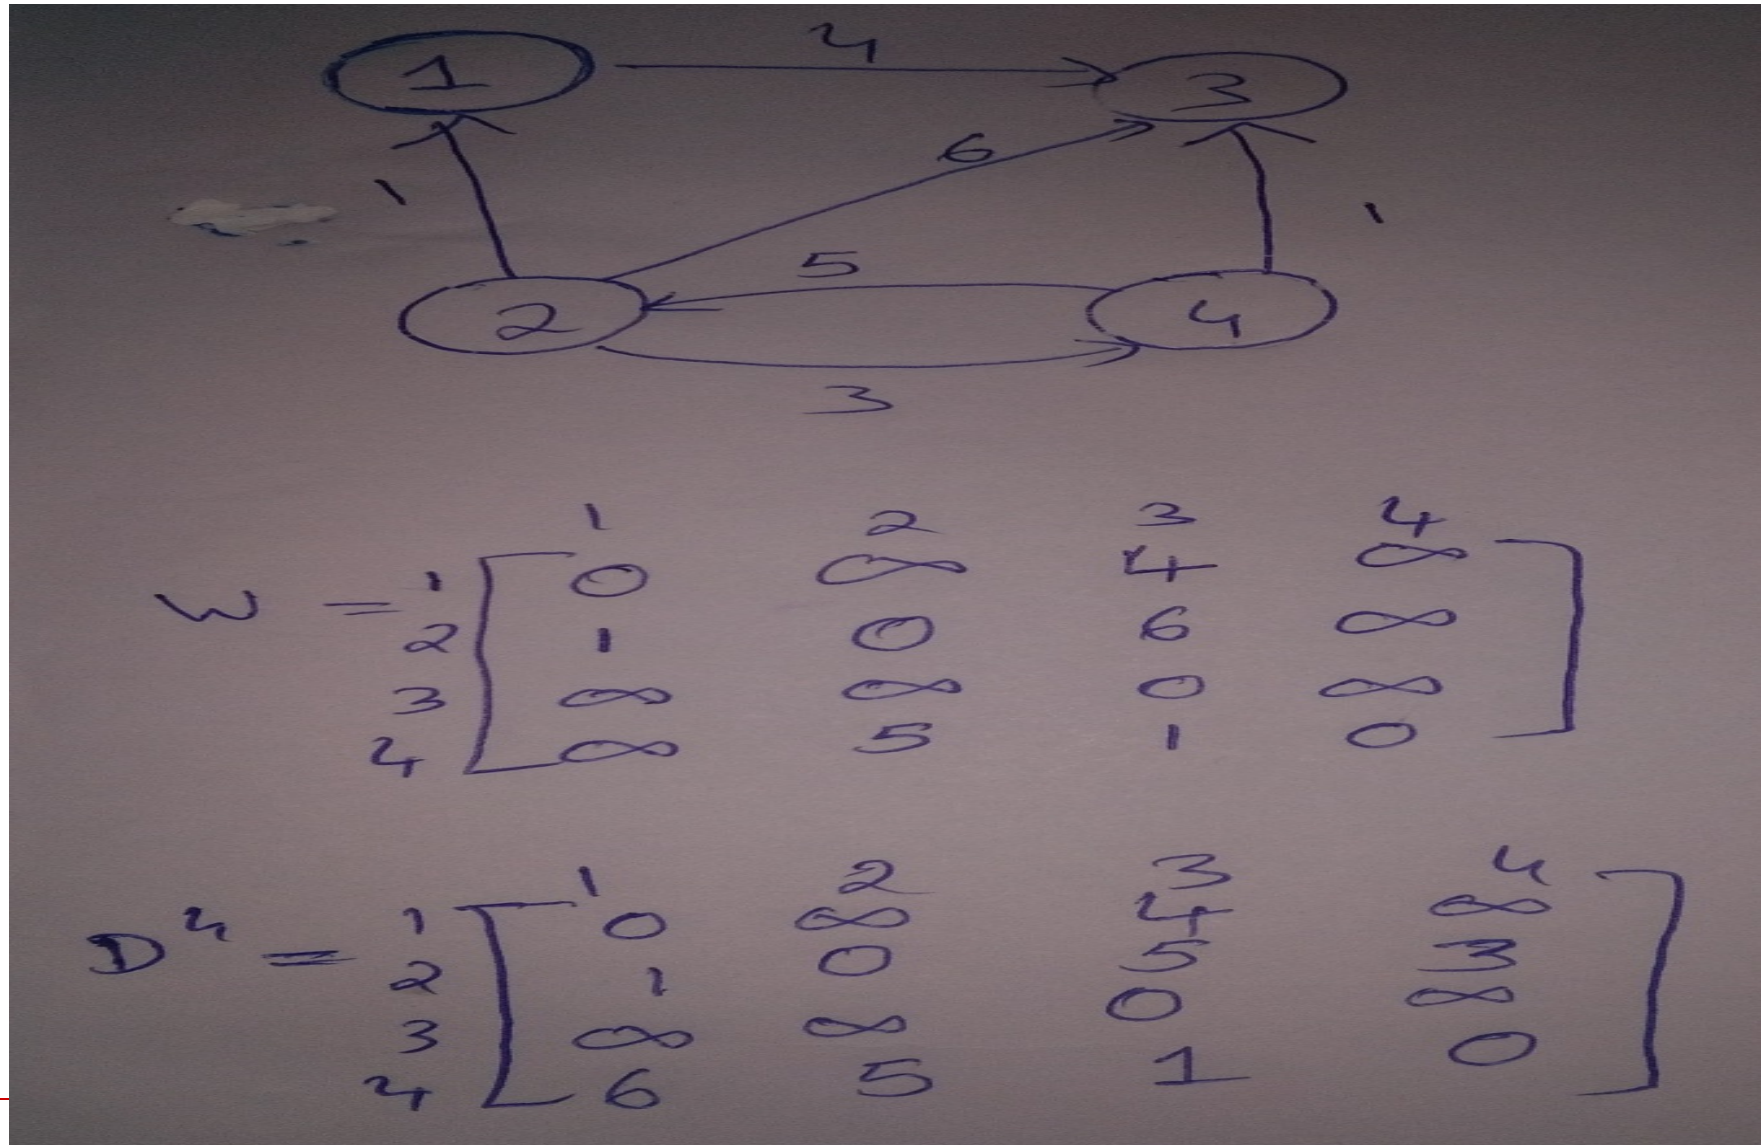 4
1 3
6
1 1
5
2 4
3
1 2 3 4
W = 1 [ 0 ∞ 4 ∞ ]
2 1 0 6 ∞
3 ∞ ∞ 0 ∞
4 ∞ 5 1 0
1 2 3 4
D⁴ = 1 [ 0 ∞ 4 ∞ ]
2 1 0 5 3
3 ∞ ∞ 0 ∞
4 6 5 1 0